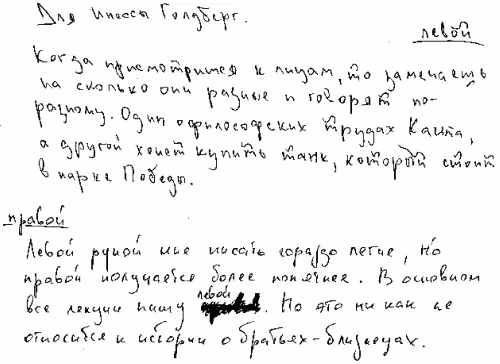 Для Инессы Голдберг.
левой
Когда присмотришся к лицам, то замечаешь
на сколько они разные и говорят по-
разному. Один о философских трудах Канта,
а другой хочет купить танк, который стоит
в парке Победы.
правой
Левой рукой мне писать гораздо легче, но
правой получается более понячнее. В основном
все лекции пишу левой. Но это ни как не
относится к истории о братьях-близнецах.